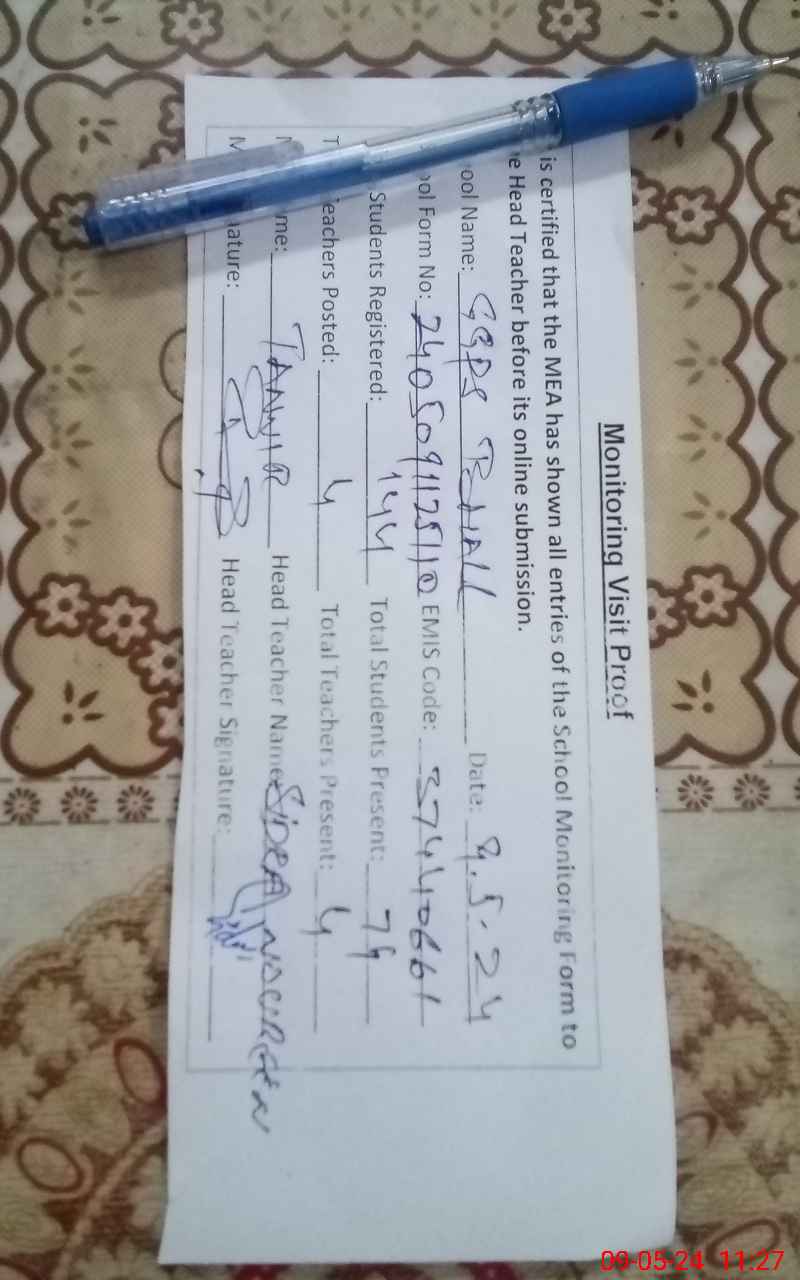 Monitoring Visit Proof
is certified that the MEA has shown all entries of the School Monitoring Form to
e Head Teacher before its online submission.
ool Name: GGPS Date: 9.5.24
ool Form No: 2405091125110 EMIS Code: 37440661
Students Registered: 144 Total Students Present: 79
T eachers Posted: 4 Total Teachers Present: 4
me: TANVIR Head Teacher Name: SIDRA
M ature: Head Teacher Signature:
09-05-24 11:27